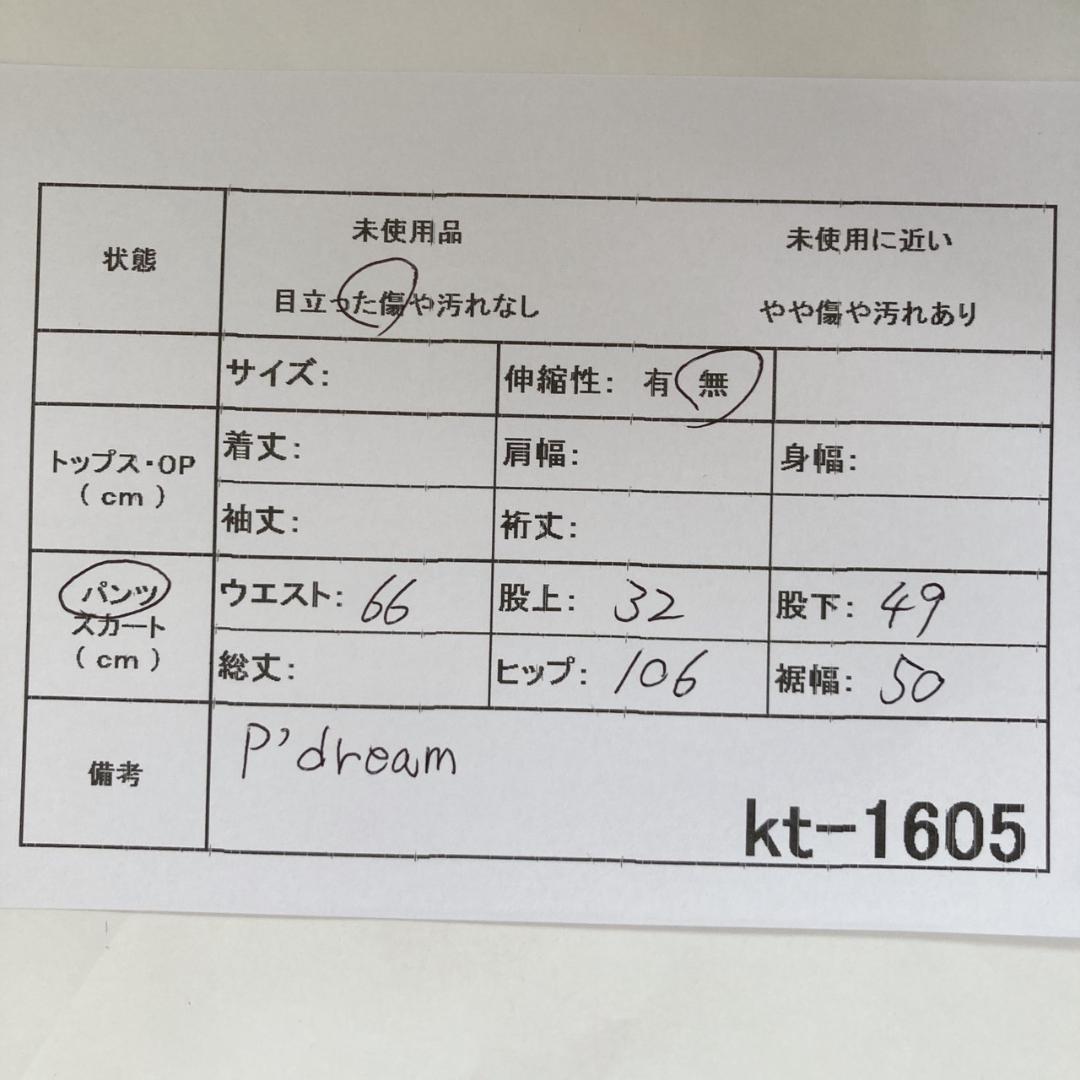 状態
未使用品 未使用に近い
目立った傷や汚れなし やや傷や汚れあり
サイズ: 伸縮性: 有 無
トップス・OP
( cm )
着丈: 肩幅: 身幅:
袖丈: 裄丈:
パンツ
スカート
( cm )
ウエスト: 66 股上: 32 股下: 49
総丈: ヒップ: 106 裾幅: 50
備考
P'dream
kt-1605